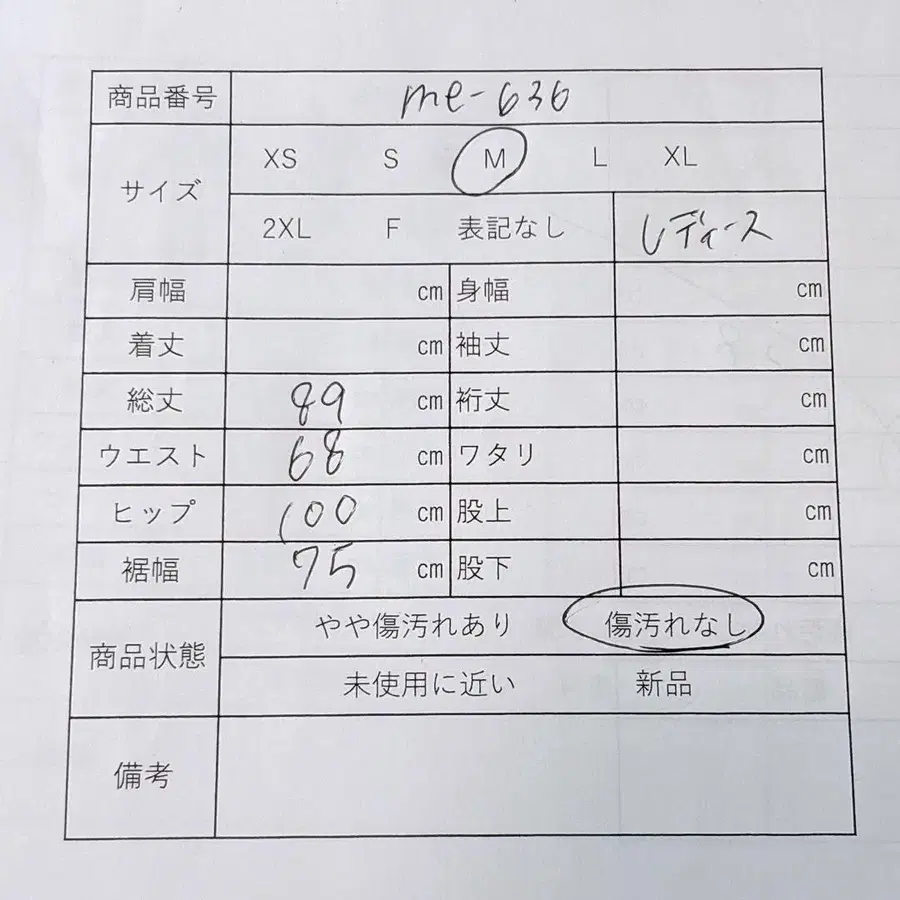 商品番号 me-636
サイズ XS S M L XL
2XL F 表記なし レディース
肩幅 cm 身幅 cm
着丈 cm 袖丈 cm
総丈 89 cm 裄丈 cm
ウエスト 68 cm ワタリ cm
ヒップ 100 cm 股上 cm
裾幅 75 cm 股下 cm
商品状態 やや傷汚れあり 傷汚れなし
未使用に近い 新品
備考